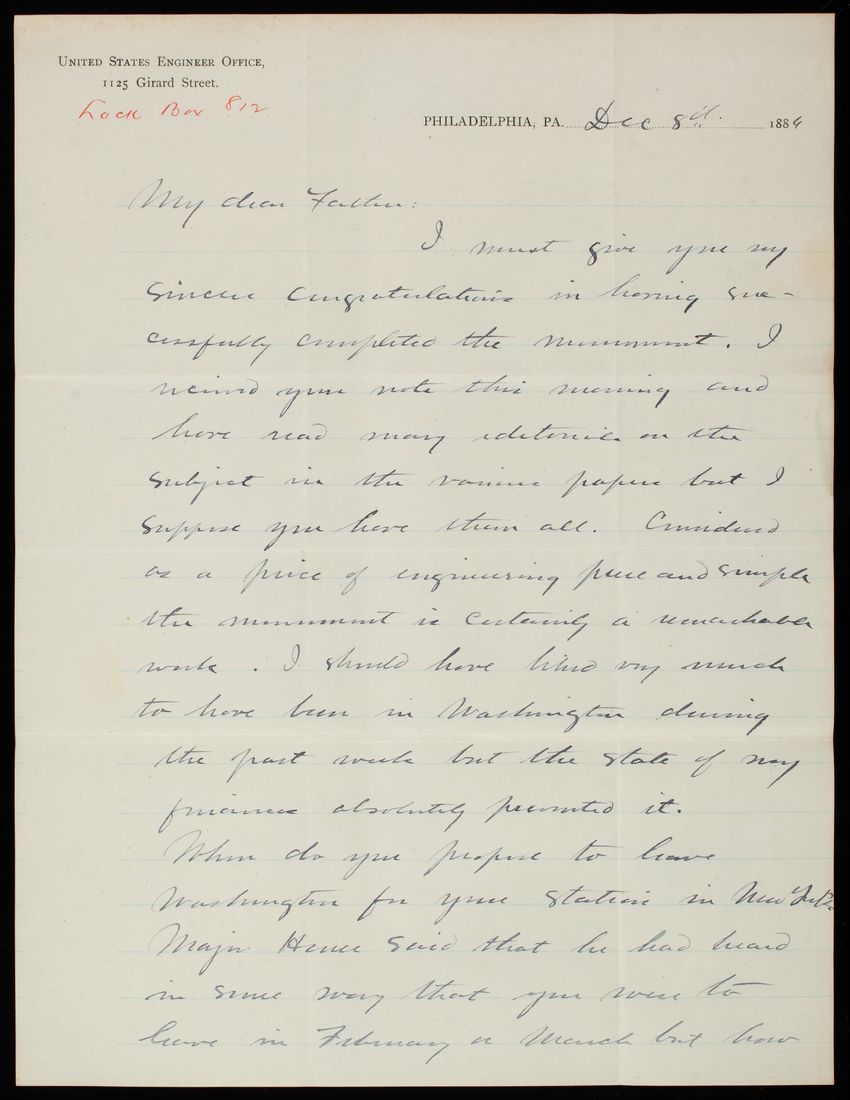 UNITED STATES ENGINEER OFFICE,
1125 Girard Street.
Lock Box 812
PHILADELPHIA, PA. Dec 8th 1884
My dear Father:
I must give you my
sincere congratulations in having suc-
cessfully completed the monument. I
received your note this morning and
have read many editorials on the
subject in the various papers but I
suppose you have them all. Considered
as a piece of engineering pure and simple
the monument is certainly a remarkable
work. I should have liked very much
to have been in Washington during
the past week but the state of my
finances absolutely prevented it.
When do you propose to leave
Washington for your station in New York
Major Heuer said that he had heard
in some way that you were to
leave in February or March but how